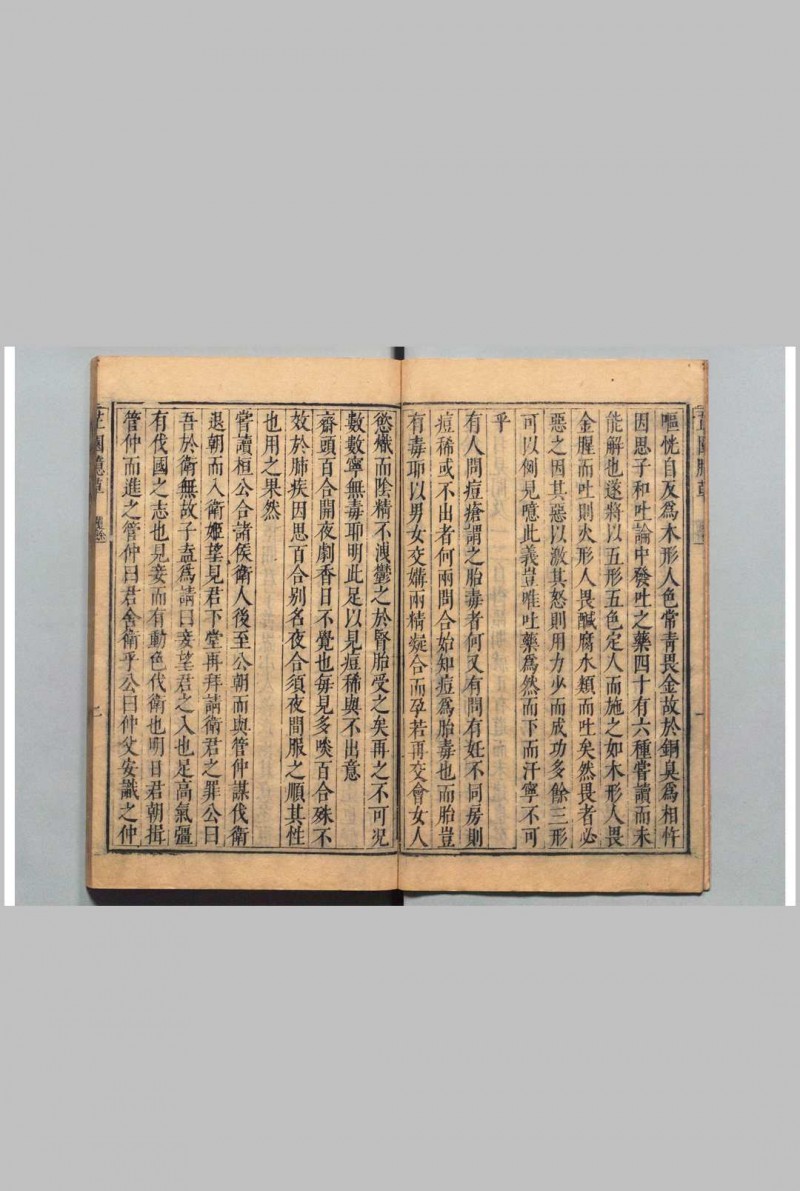 嘔恍自反爲木形人色常靑畏金故於銅臭爲相忤
因思子和吐論中發吐之藥四十有六種嘗讀而未
能解也遂將以五形五色定人而施之如木形人畏
金腥而吐則火形人畏鹹腐水類而吐矣然畏者必
惡之因其惡以激其怒則用力少而成功多餘三形
可以例見噫此義豈唯吐藥爲然而下而汗寧不可
乎
有人問痘瘡謂之胎毒者何又有問有妊不同房則
痘稀或不出者何兩問合始知痘爲胎毒也而胎豈
有毒耶以男女交媾兩精凝合而孕若再交會女人
慾熾而陰精不洩鬱之於腎胎受之矣再之不可況
數數寧無毒耶明此足以見痘稀與不出意
齋頭百合開夜劇香日不覺也每見多啖百合殊不
效於肺疾因思百合別名夜合須夜間服之順其性
也用之果然
嘗讀桓公合諸侯衛人後至公朝而與管仲謀伐衛
退朝而入衛姬望見君下堂再拜請衛君之罪公曰
吾於衛無故子盍爲請曰妾望君之入也足高氣彊
有伐國之志也見妾而有動色伐衛也明日君朝揖
管仲而進之管仲曰君舍衛乎公曰仲父安識之仲
二